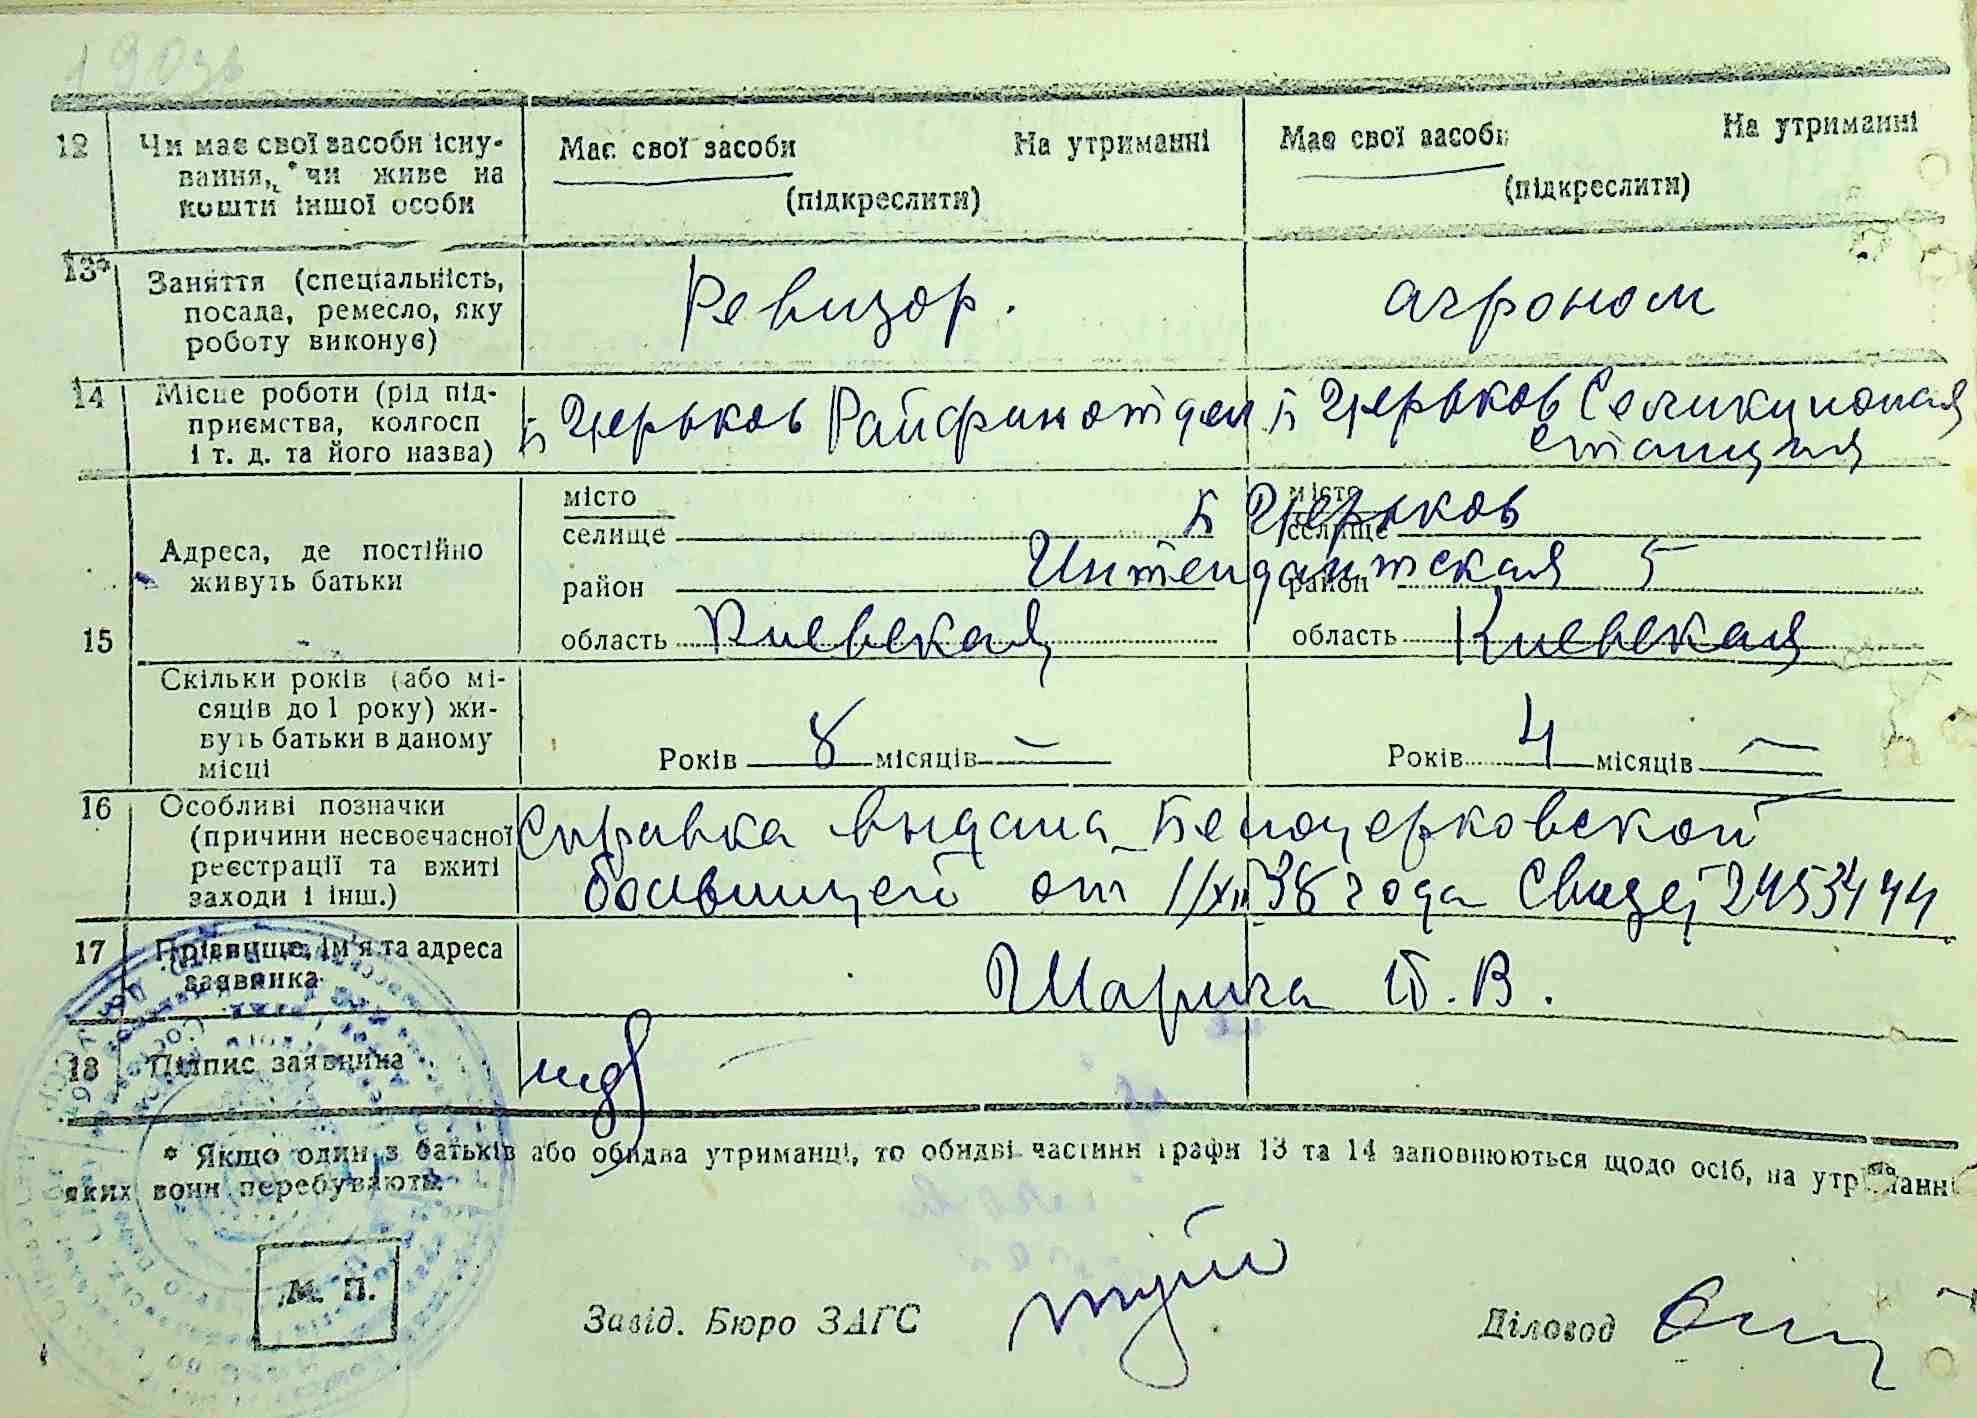 190зв
12 Чи має свої засоби існу- Має свої засоби На утриманні Має свої засоби На утриманні
вання, чи живе на (підкреслити) (підкреслити)
кошти іншої особи
13* Заняття (спеціальність, Ревизор. агроном
посада, ремесло, яку
роботу виконує)
14 Місце роботи (рід під- Б Церьков Райфинотдел Б Церьков Селикционая
приємства, колгосп станция
і т. д. та його назва)
15 Адреса, де постійно живуть батьки
місто місто
селище селище Б Церьков
район район Интендантская 5
область Киевская область Киевская
Скільки років (або мі-
сяців до 1 року) жи-
вуть батьки в даному Років 8 місяців — Років 4 місяців —
місці
16 Особливі позначки Справка выдана Белоцерковской
(причини несвоєчасної больницей от 1/XII 38 года Свидет 2453444
реєстрації та вжиті
заходи і інш.)
17 Прізвище, ім'я та адреса
заявника
В.
18 Підпис заявника
* Якщо один з батьків або обидва утриманці, то обидві частини графи 13 та 14 заповнюються щодо осіб, на утриманні
яких вони перебувають.
М. П.
Завід. Бюро ЗАГС Діловод